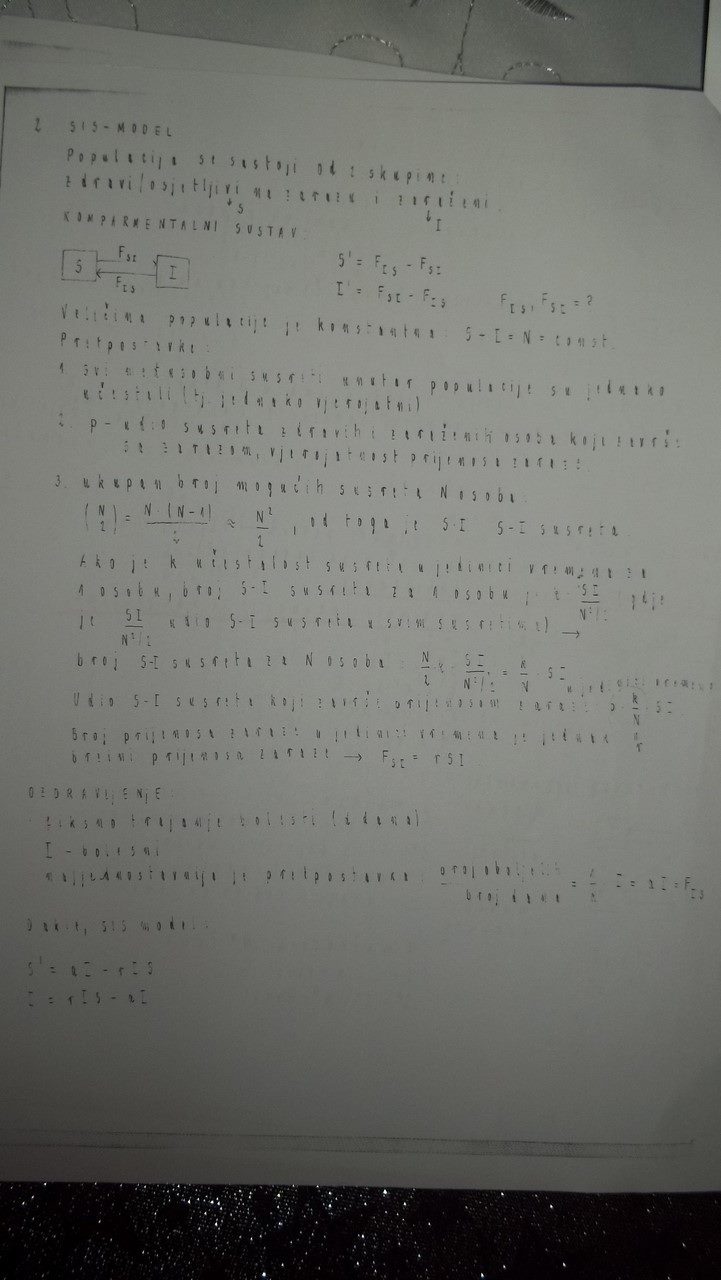 2 SIS-MODEL
Populacija se sastoji od 2 skupine:
zdravi/osjetljivi na zarazu i zaraženi.
↓S ↓I
KOMPARMENTALNI SUSTAV:
S F_SI F_IS I
S' = F_IS - F_SI
I' = F_SI - F_IS F_IS, F_SI = ?
Veličina populacije je konstantna: S-I=N=const.
Pretpostavke:
1. svi međusobni susreti unutar populacije su jednako
učestali (tj. jednako vjerojatni)
2. p- udio susreta zdravih i zaraženih osoba koje završe
sa zarazom, vjerojatnost prijenosa zaraze.
3. ukupan broj mogućih susreta N osoba:
(N 2) = N·(N-1)/2 ≈ N²/2, od toga je S·I S-I susreta.
Ako je k učestalost susreta u jedinici vremena za
1 osobu, broj S-I susreta za 1 osobu je k· SI/N²/2 (gdje
je SI/N²/2 udio S-I susreta u svim susretima) →
broj S-I susreta za N osoba: N/2 k· SI/N²/2 = k/N · SI u jedinici vremena
Udio S-I susreta koji završi prijenosom zaraze: p· k/N · SI
Broj prijenosa zaraze u jedinici vremena je jednak
r
brzini prijenosa zaraze → F_SI = rSI
OZDRAVLJENJE:
- fiksno trajanje bolesti (d dana)
I - bolesni
najjednostavnija je pretpostavka: broj oboljelih/broj dana = I = aI = F_IS
Dakle, SIS model:
S' = aI - rIS
I = rIS - aI